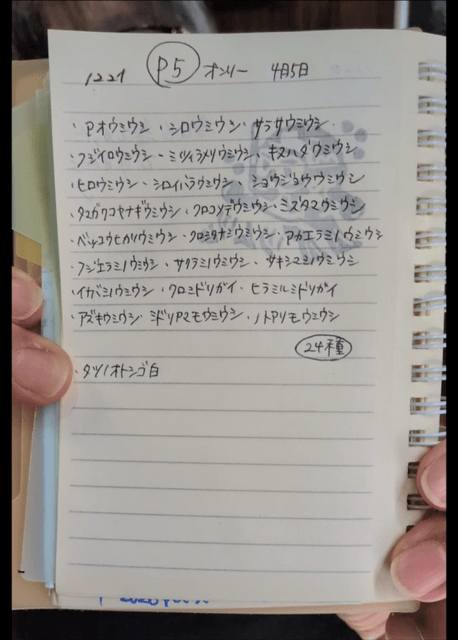 1221 P5 オンリー 4月5日
・アオウミウシ ・シロウミウシ ・サラサウミウシ
・フジイロウミウシ ・ミツイラメリウミウシ ・キスハダウミウシ
・ヒロウミウシ ・シロイバラウミウシ ・ショウジョウウミウシ
・タマガワコヤナギウミウシ ・クロコソデウミウシ ・ミズタマウミウシ
・ベッコウヒカリウミウシ ・クロシタナシウミウシ ・アカエラミノウミウシ
・フジエラミノウミウシ ・サクラミノウミウシ ・サキシマミノウミウシ
・イガバミノウミウシ ・クロミドリガイ ・ヒラミルミドリガイ
・アズキウミウシ ミドリアマモウミウシ ・ノトアリモウミウシ
24種
・タツノオトシゴ白